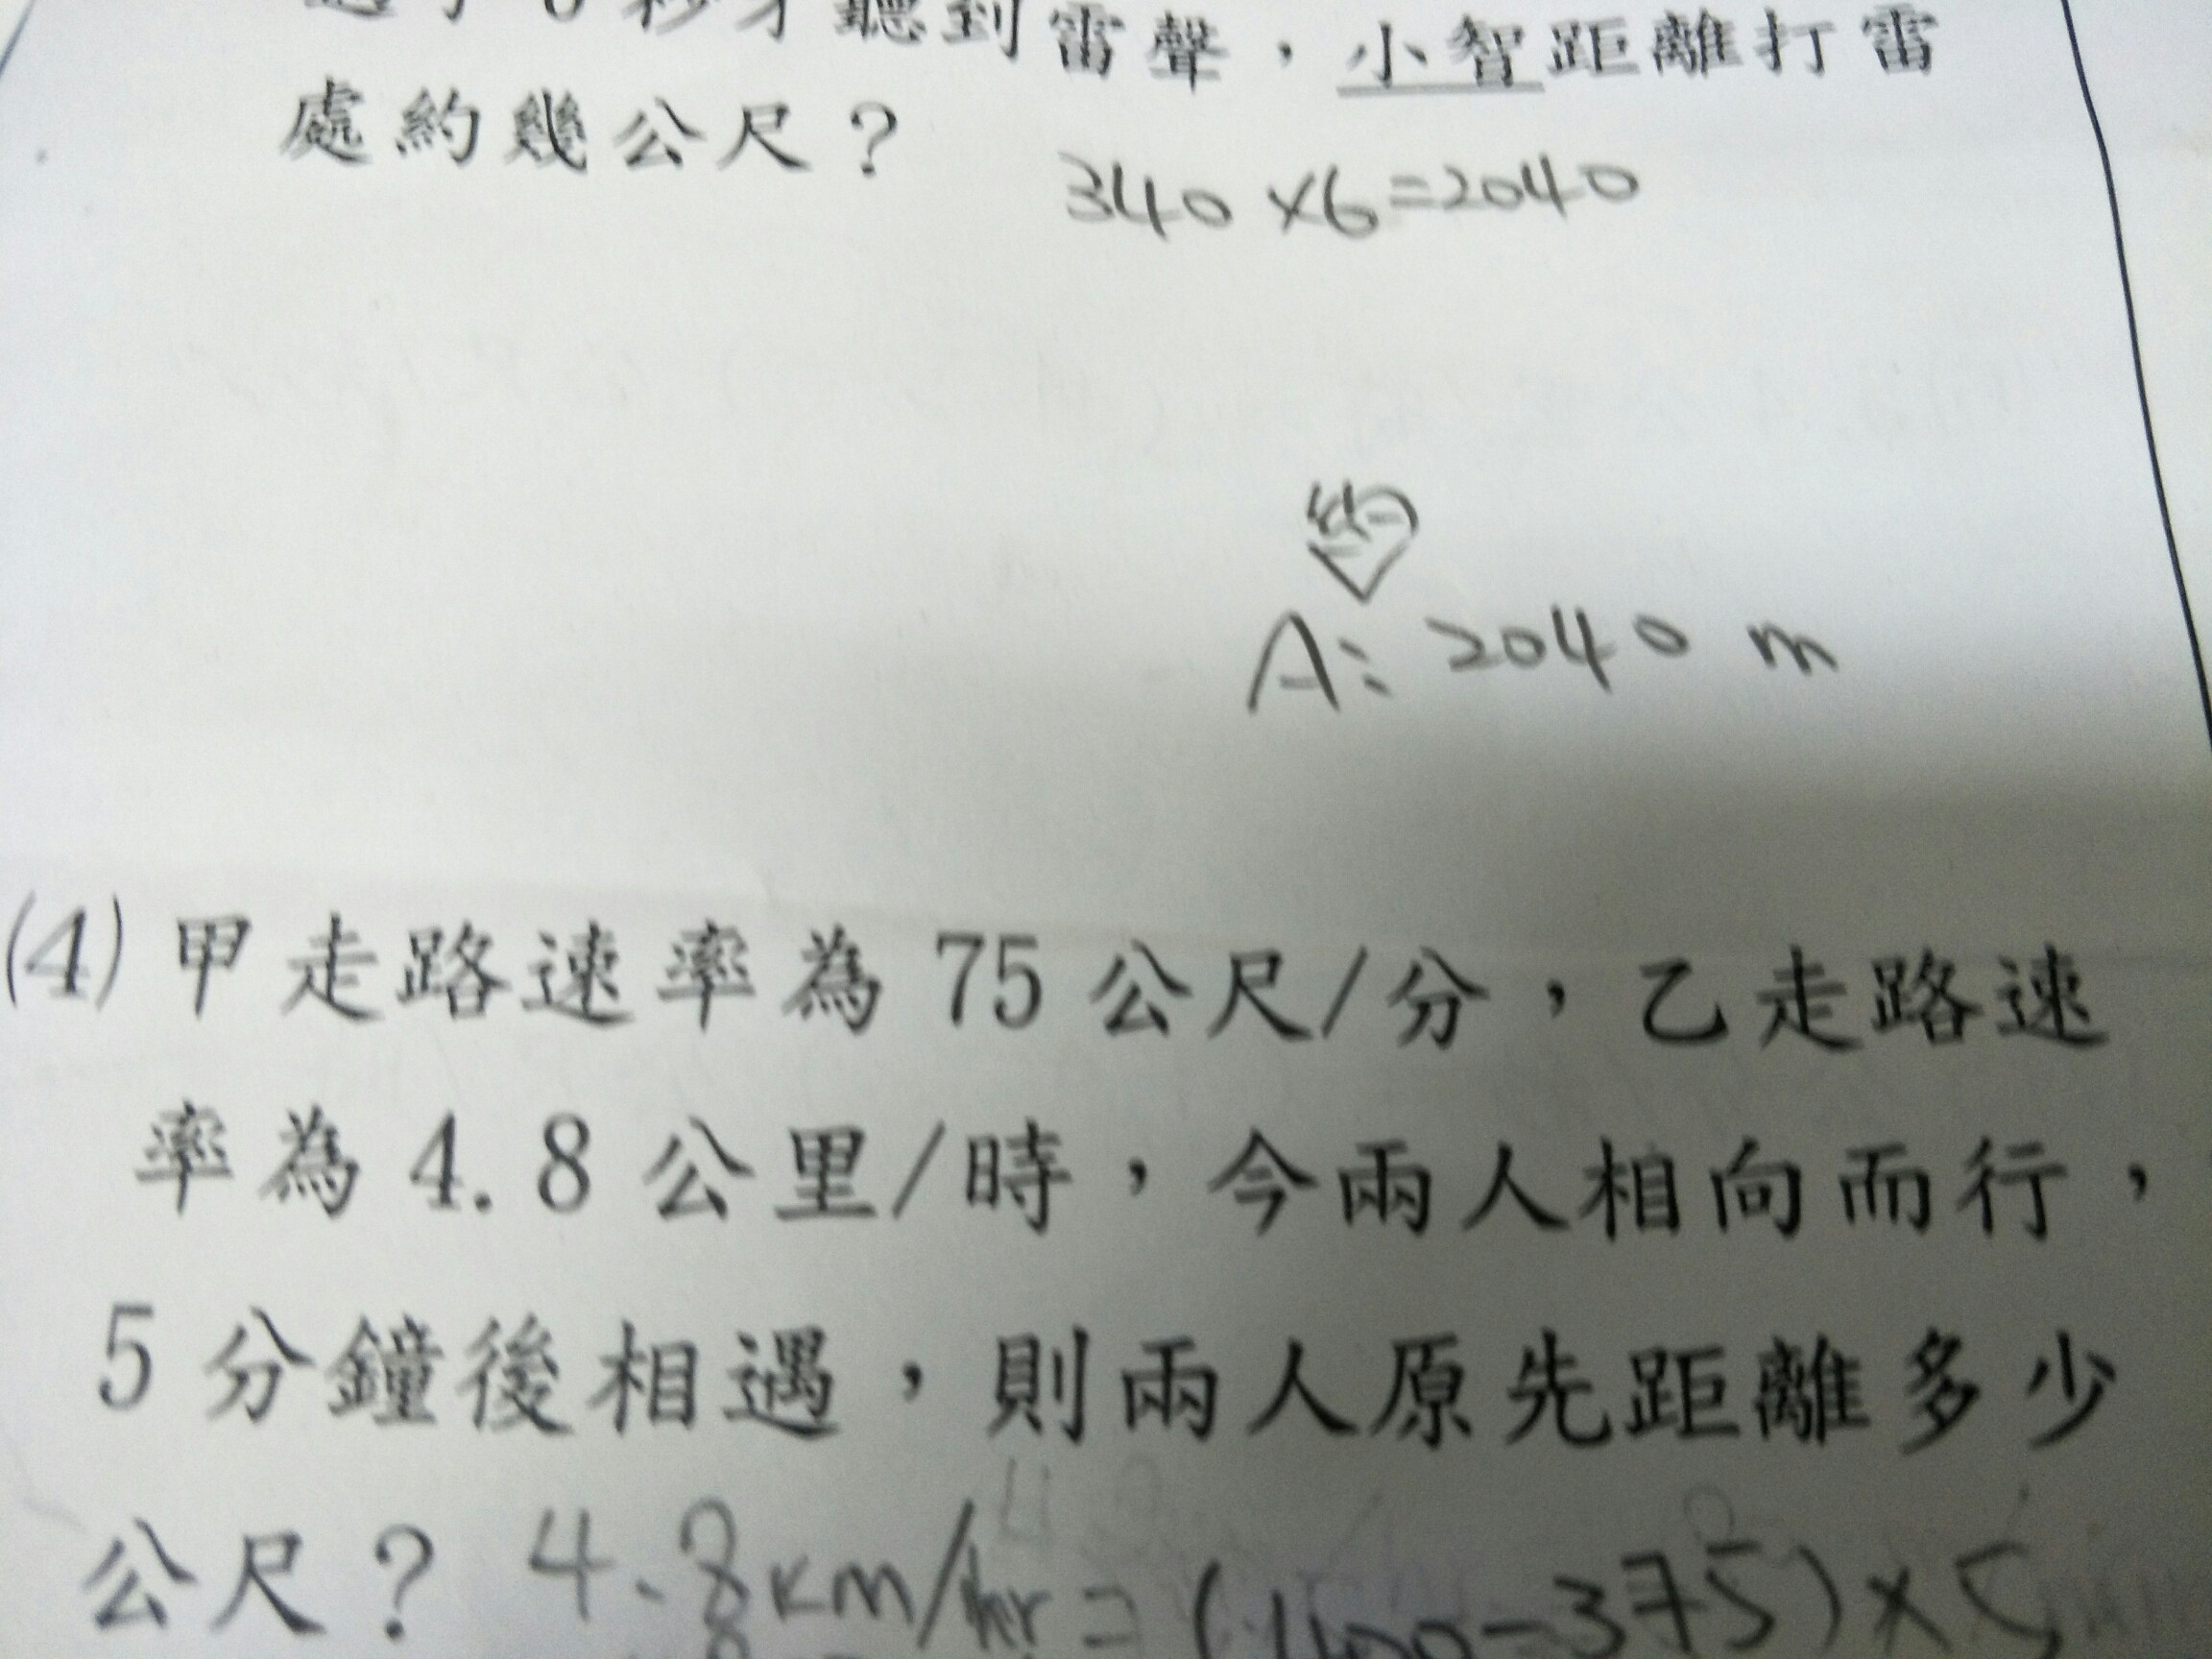 秒才聽到雷聲，小智距離打雷
處約幾公尺？
340×6=2040
約
A: 2040 m
(4) 甲走路速率為 75 公尺/分，乙走路速
率為 4.8 公里/時，今兩人相向而行，
5 分鐘後相遇，則兩人原先距離多少
公尺？ 4.8km/hr = (400-375)×5